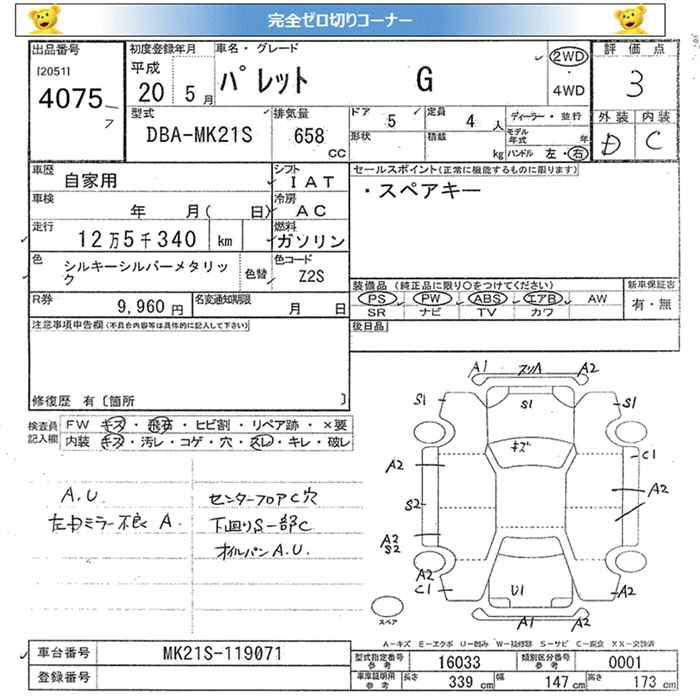 完全ゼロ切りコーナー
出品番号
[2051]
4075
7
初度登録年月
平成
20 5月
車名・グレード
パレット G
2WD
4WD
評価点
3
外装 内装
D C
型式
DBA-MK21S
排気量
658
CC
ドア 5
定員 4 人
形状
積載 kg
ディーラー・並行
モデル年式 年
ハンドル 左・右
車歴
自家用
シフト
IAT
車検
年 月( 日)
冷房
AC
走行
12万5千340 km
燃料
ガソリン
色
シルキーシルバーメタリック
色替
色コード
Z2S
R券
9,960 円
名変通知期限
月 日
セールスポイント(正常に機能するものに限ります)
・スペアキー
装備品 (純正品に限り〇をつけてください)
PS PW ABS エアB AW
SR ナビ TV カワ
新車保証書
有・無
後日品
注意事項申告欄(不具合内容等は具体的に記入して下さい)
修復歴 有〔箇所 〕
検査員
記入欄
FW キズ・飛石・ヒビ割・リペア跡・×要
内装 キズ・汚レ・コゲ・穴・スレ・キレ・破レ
A.U.
左中ミラー不良 A.
センターフロアC穴
下回りS一部C
オイルパンA.U.
A1 A2
S1 S1 S1
キズ
A2 C1
S2 A2
A2
S2
A2
C1 U1 A2
A1 A2
スペア
A-キズ E-エクボ U-凹み W-補修跡 S-サビ C-腐食 XX-交換済
車台番号
MK21S-119071
登録番号
型式指定番号
参考
16033
類別区分番号
参考
0001
車庫証明用
参考
長さ 339 cm
幅 147 cm
高さ 173 cm